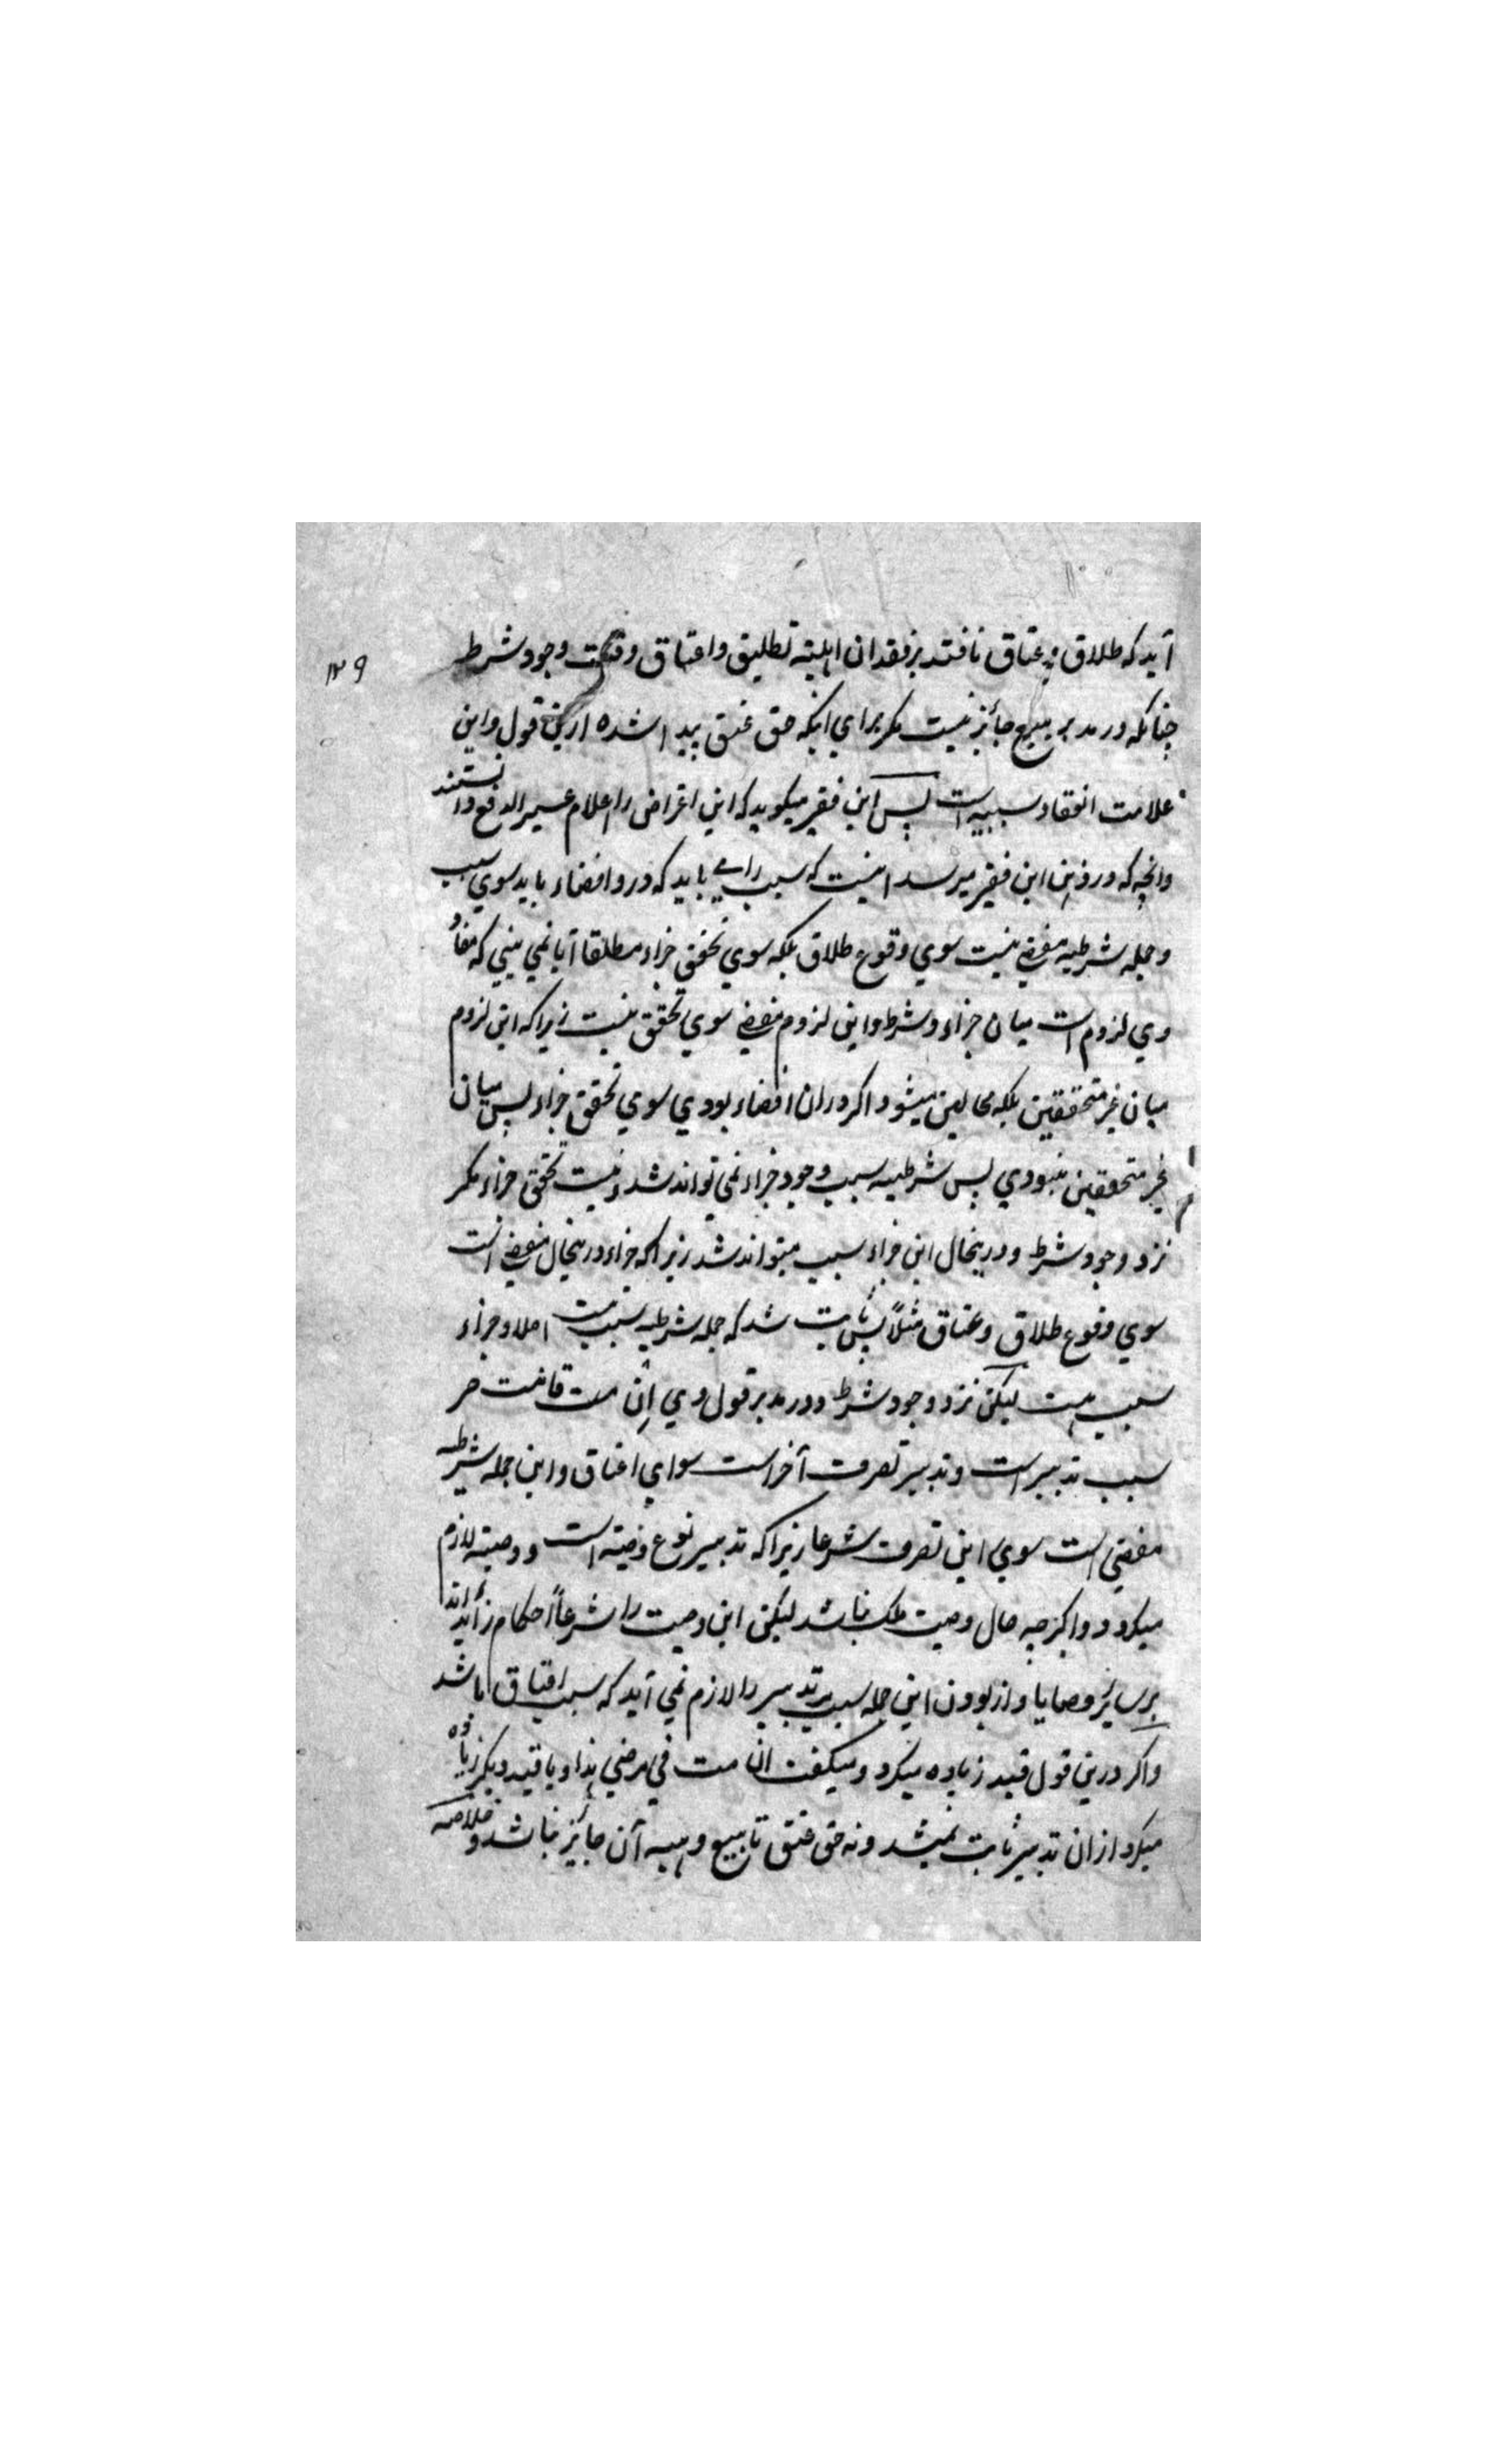 ۱۳۹
آید که طلاق و عتاق نافتند بر فقدان اهلیته تطلیق و اعتاق وقت وجود شرط
چنانکه در مدبر بیع جائز نیست مکر برای اینکه حق عتق پیدا شده ازین قول و این
علامت انعقاد سببیه است پس این فقیر میکوید که این اعتراض را اعلام عسیر الدفع دانستند
وانچه که در ذهن این فقیر میرسد اینست که سبب را می باید که درو افضاء باید سوی سبب
و جمله شرطیه مفضی نیست سوی وقوع طلاق بلکه سوی تحقق جزاء مطلقا آیا نمی بینی که مفاد
وی لزوم است میان جزاء و شرط و این لزوم مفضی سوی تحقق نیست زیرا که این لزوم
میان غیر متحققین بلکه محالین میشود اکر دران افضاء بودی سوی تحقق جزاء پس میان
غیر متحققین نبودی پس شرطیه سبب وجود جزاء نمی تواند شد و نیست تحقق جزاء مکر
نزد وجود شرط و درینحال این جزاء سبب میتواند شد زیرا که جزاء درینحال مفضی است
سوی وقوع طلاق و عتاق مثلاً پس ثابت شد که جمله شرطیه سبب نیست اصلا و جزاء
سبب است لیکن نزد وجود شرط و در مدبر قول وی ان مت فانت حر
سبب تدبیر است و تدبیر تصرف آخر است سوای اعتاق و این جمله شرطیه
مفضی است سوی این تصرف شرعا زیرا که تدبیر نوع وصیته است و وصیته لازم
میکردد و اکرچه حال وصیت ملک نباشد لیکن این وصیت را شرعاً احکام زائد اند
بر سایر وصایا و از بودن این جمله سبب مر تدبیر را لازم نمی آید که سبب اعتاق باشد
و اکر درین قول قید زیاده میکرد و میکفت ان مت فی مرضی هذا و یا قید دیکر زیاده
میکرد ازان تدبیر ثابت نمیشد و نه حق عتق تا بیع و هبه آن جائز نباشد و خلاصه